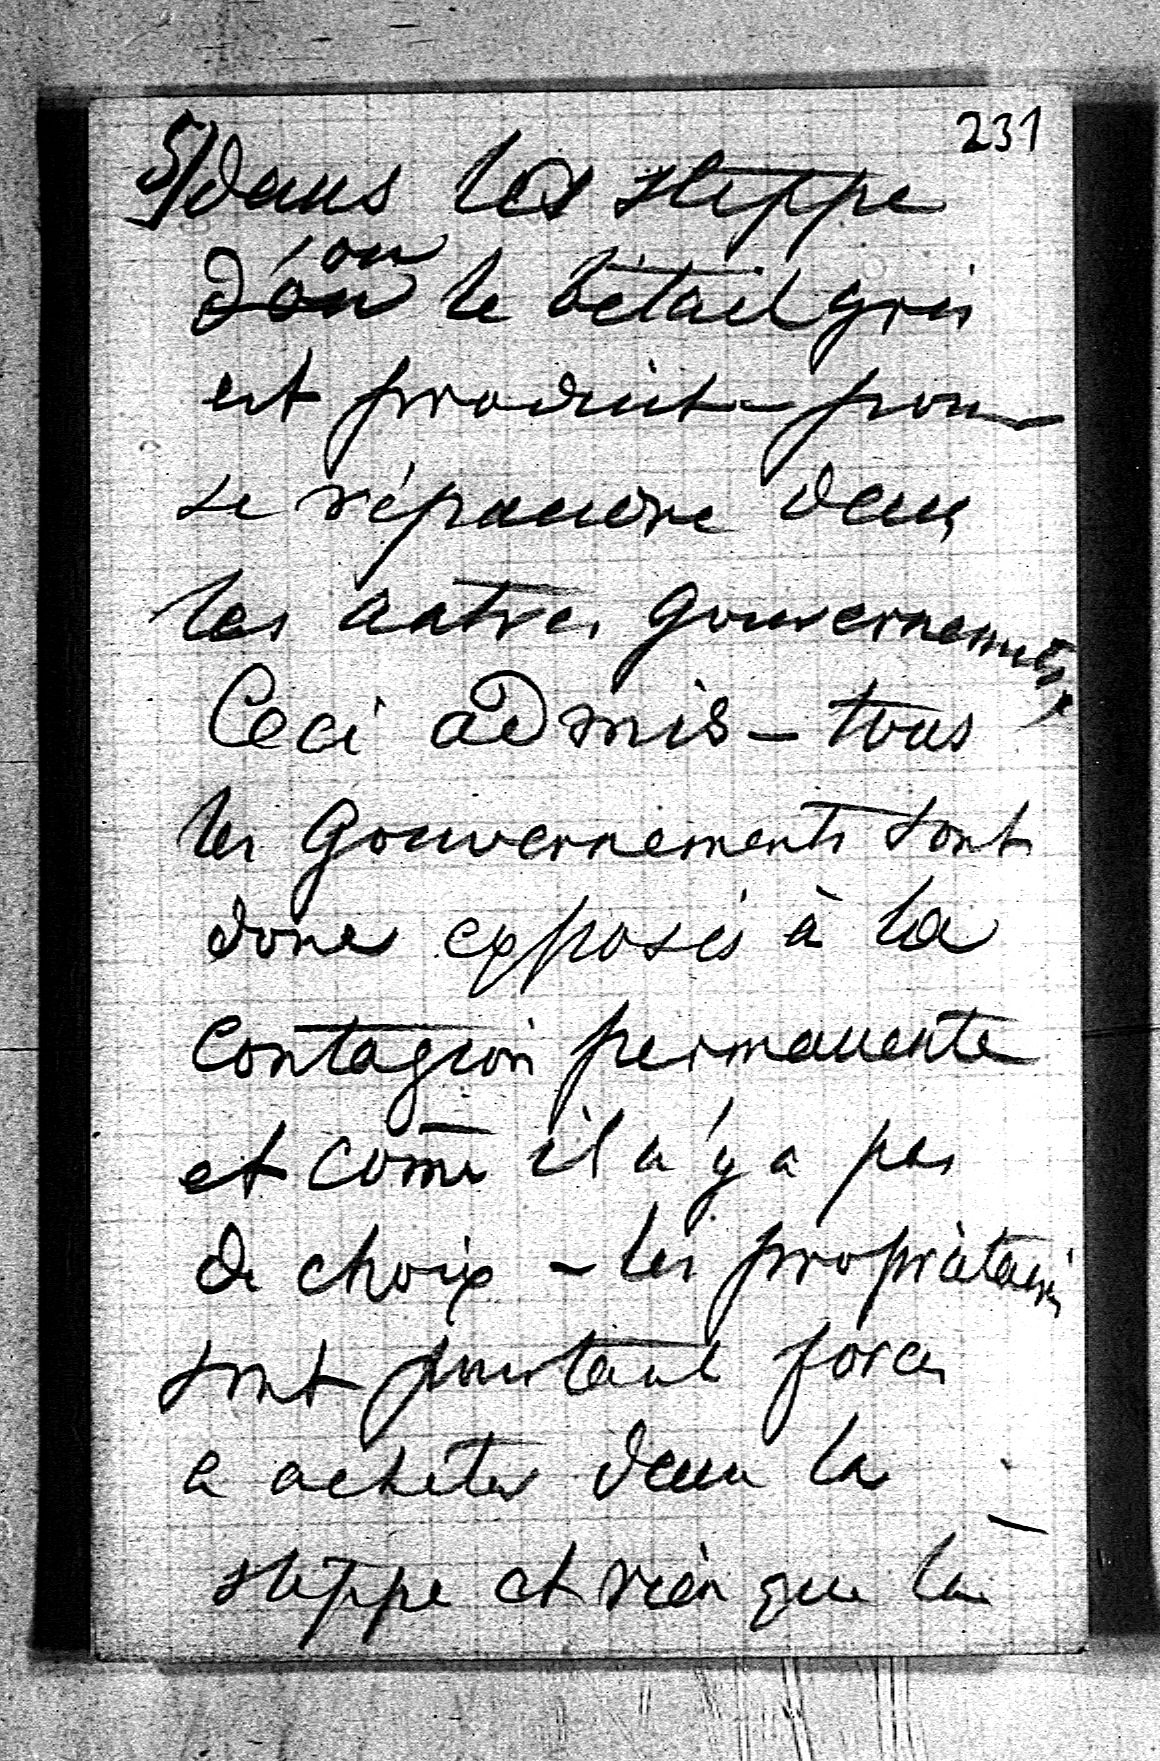 231
5) dans les steppe
où
d'où le bétail gris
est produit – pour
se répandre dans
les autres gouvernements,
Ceci admis – tous
les gouvernements sont
donc exposés à la
contagion permanente
et come il n'y a pas
de choix – les propriétaires
sont pourtant forcés
a acheter dans la
steppe et rien que là